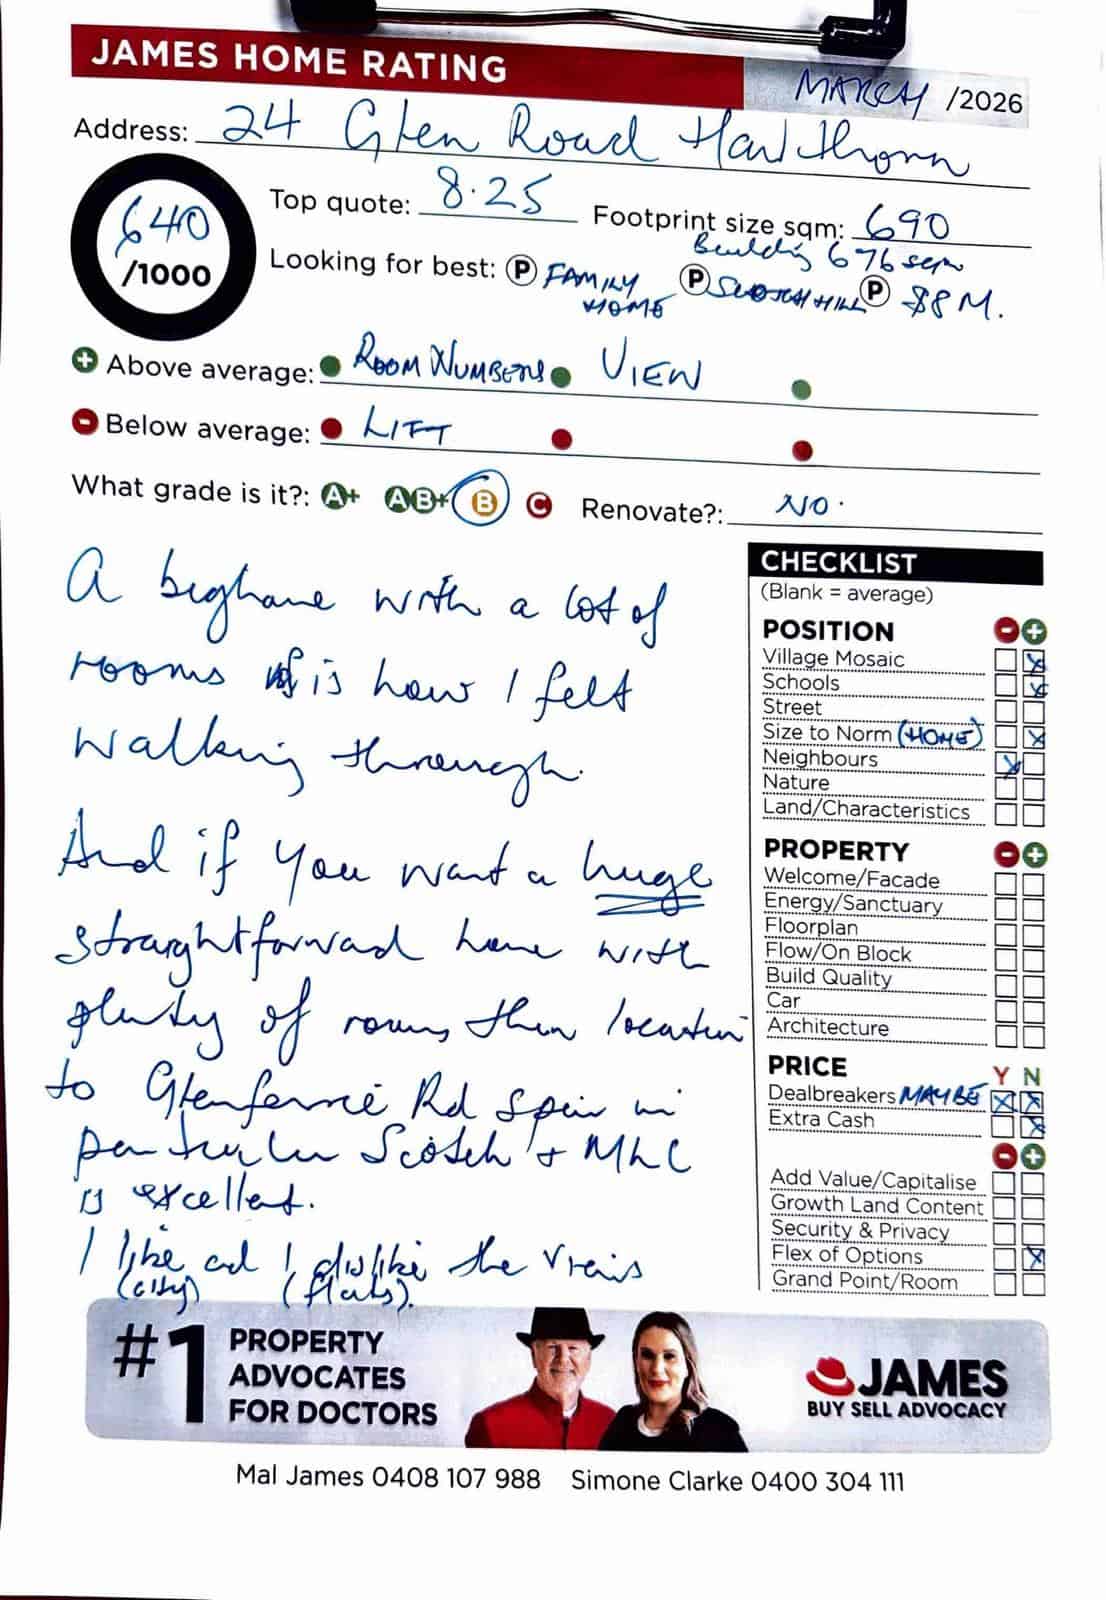 JAMES HOME RATING
MARCH /2026
Address: 24 Glen Road Hawthorn
640 /1000
Top quote: 8.25 Footprint size sqm: 690
Building 676 sqm
Looking for best: P FAMILY HOME P SCOTCH HILL P $8M.
+ Above average: ROOM NUMBERS VIEW
- Below average: LIFT
What grade is it?: A+ A B+ B C Renovate?: NO.
A big home with a lot of
rooms is how I felt
walking through.
And if you want a huge
straightforward home with
plenty of rooms then location
to Glenferrie Rd Spine in
particular Scotch + MLC
is excellent.
I like and I dislike the views
(city) (flats).
CHECKLIST
(Blank = average)
POSITION - +
Village Mosaic X
Schools X
Street
Size to Norm (HOME) X
Neighbours X
Nature
Land/Characteristics
PROPERTY - +
Welcome/Facade
Energy/Sanctuary
Floorplan
Flow/On Block
Build Quality
Car
Architecture
PRICE Y N
Dealbreakers MAYBE X X
Extra Cash X
- +
Add Value/Capitalise
Growth Land Content
Security & Privacy
Flex of Options X
Grand Point/Room
#1 PROPERTY
ADVOCATES
FOR DOCTORS
JAMES
BUY SELL ADVOCACY
Mal James 0408 107 988 Simone Clarke 0400 304 111